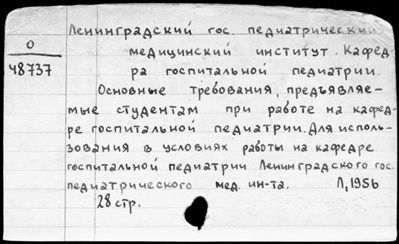 Ленинградский гос. педиатрический
О
48737
медицинский институт. Кафед-
ра госпитальной педиатрии.
Основные требования, предъявляе-
мые студентам при работе на кафед-
ре госпитальной педиатрии. Для исполь-
зования в условиях работы на кафедре
госпитальной педиатрии Ленинградского гос.
педиатрического мед. ин-та. Л, 1956
28 стр.